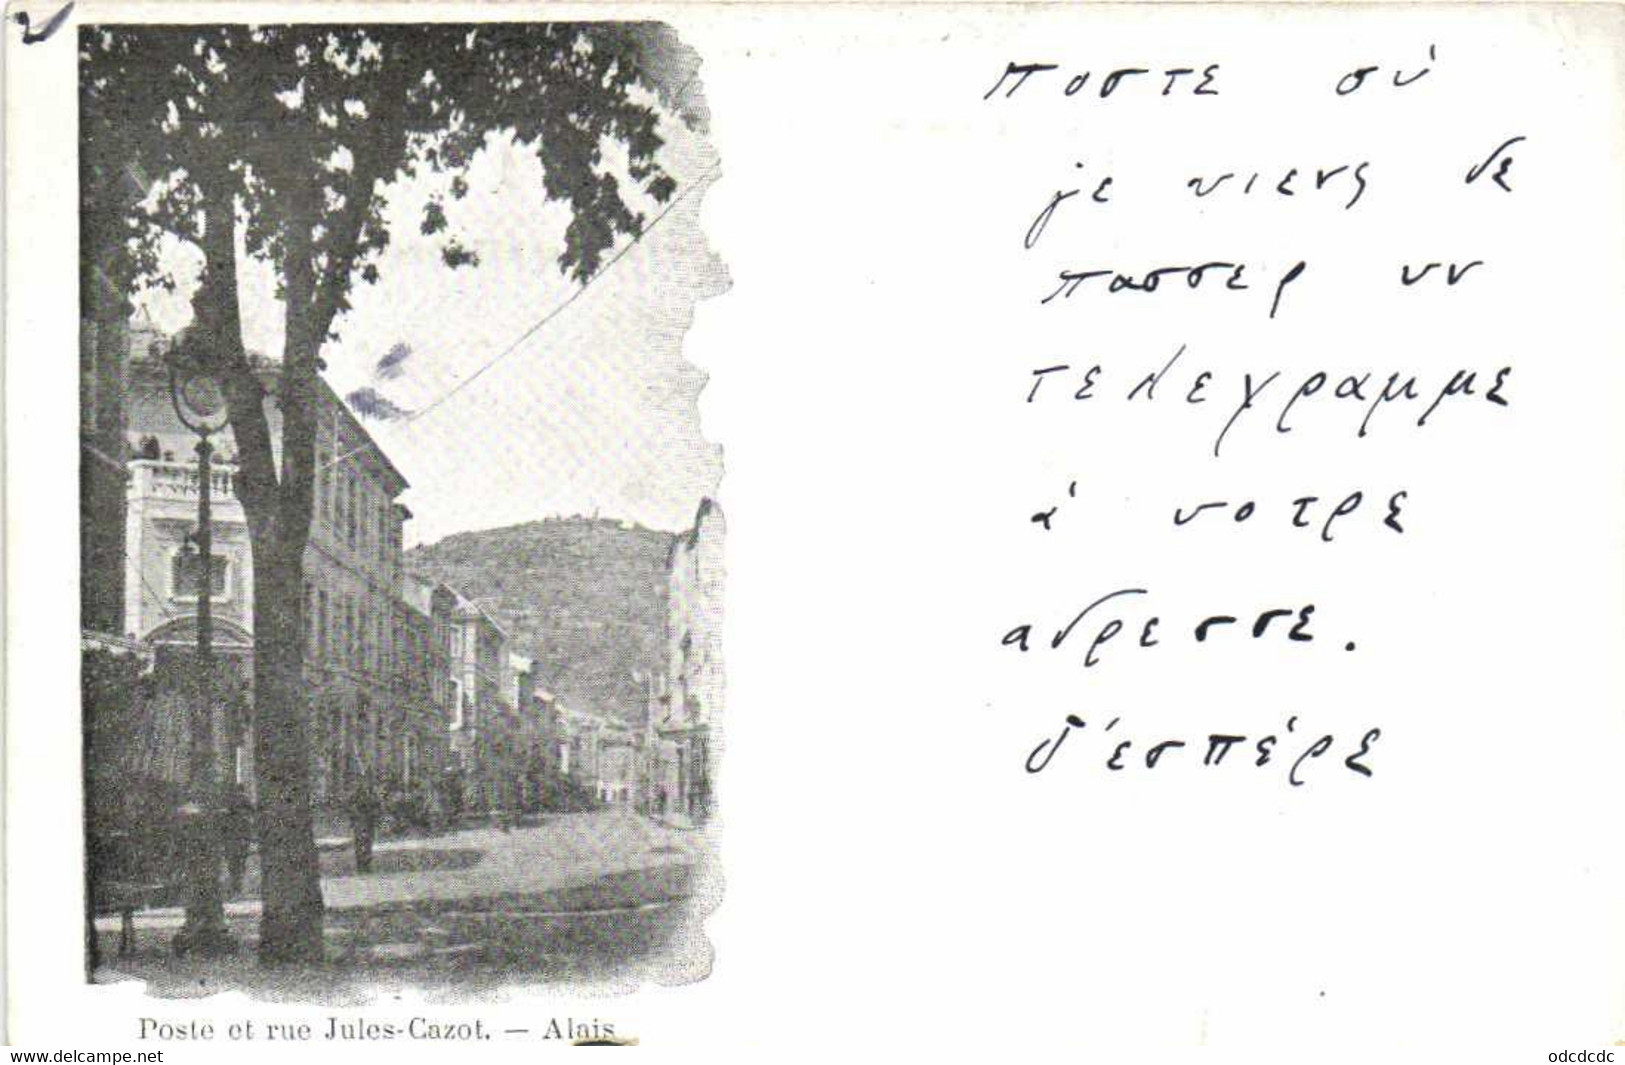 ποστε ού
jε υιενς δε
πασσερ υν
τελεγραμμε
ά υοτρε
αδρεσσε.
δ'εσπέρε
Poste et rue Jules-Cazot. — Alais
www.delcampe.net
odcdcdc